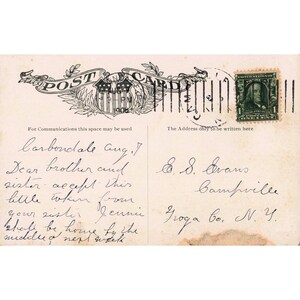 POST CARD
For Communications this space may be used
The Address only to be written here
Carbondale Aug. 7
Dear brother and
sister accept this
little token from
your sister Jennie
shall be home by the
middle of next week
E. S. Evans
Campville
Tioga Co. N. Y.
1